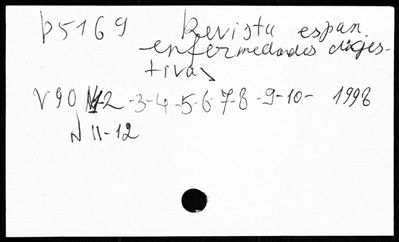 p5169 Revista espan.
enfermedades diges-
tivas
V90 N1-2 -3-4-5-6-7-8-9-10- 1998
N 11-12